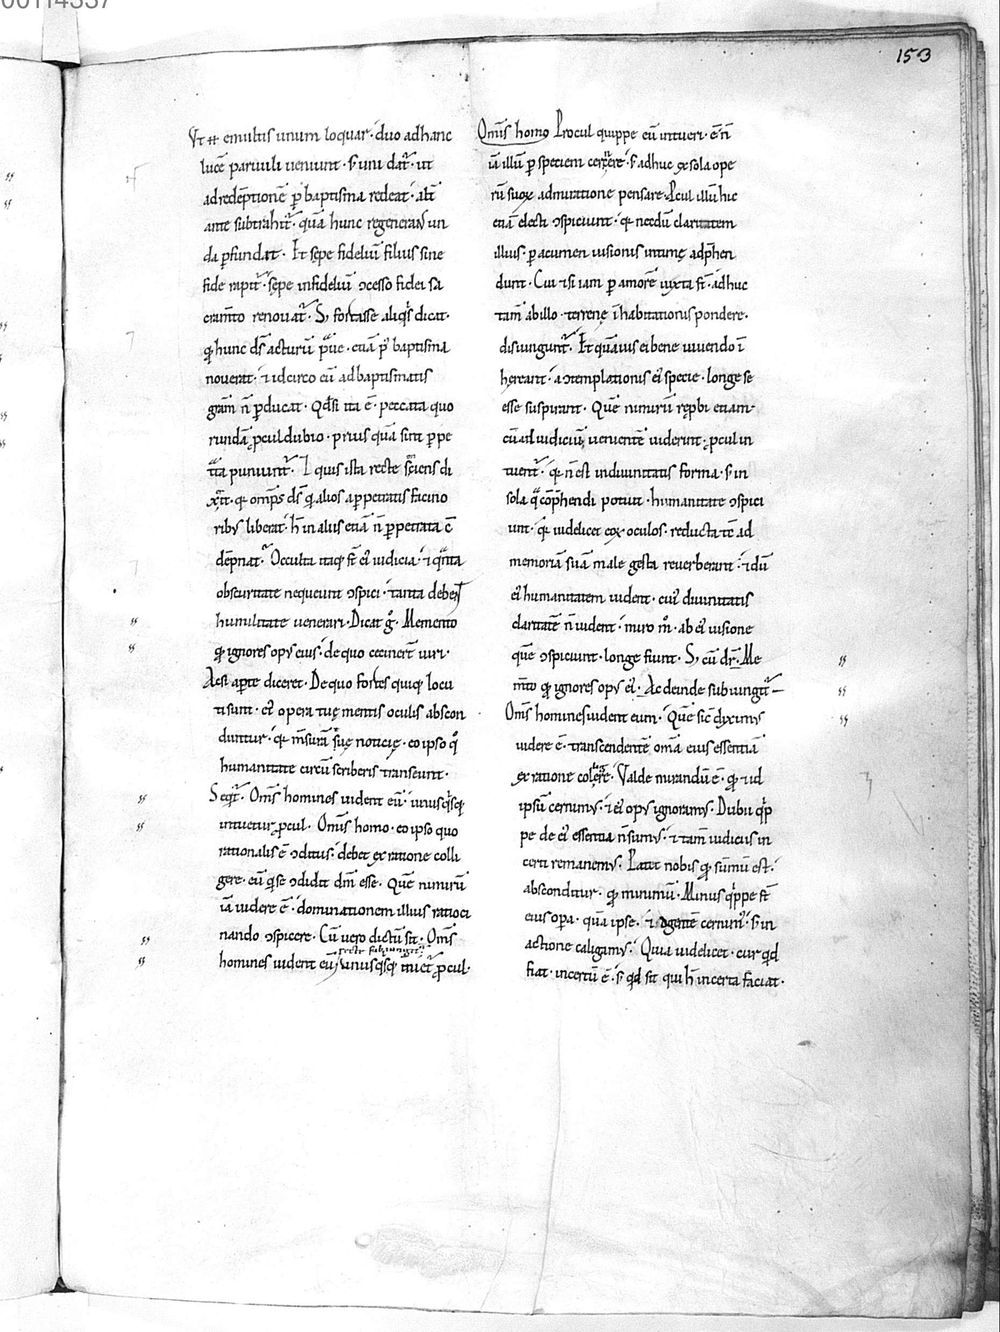 00114337
153
Vt ⁊⁊ emultis unum loquar · duo ad hanc
lucē paruuli ueniunt · s; uni dat᷑ · ut
ad redēptionē p̄ baptisma redeat · alt̄
ante subtrahit᷑ · quā hunc regenerans un
da ꝑfundat · Et sepe fideliū filius sine
fide rapit᷑ · sepe infideliū ↄcesso fidei sa
cram̄to renouat᷑ · S; fortasse aliqis dicat·
q̄ hunc dš acturū praue · etiā pꝰ baptisma
nouerat · ⁊ idcirco eū ad baptismatis
gram̄ n̄ ꝑducat · Qdsi ita ē · peccata quo
rundā ꝓculdubio · prius quā sint ꝑpe
trata puniunt᷑ · Et quis ista recte sentiens di
xerit · q omp̄s dš q alios a ꝑpetratis facino
ribꝰ liberat · h̄ in aliis etiā n̄ ꝑpetrata cō
dēpnat᷑ · Occulta itaq; st̄ eiꝰ iudicia · ⁊ qnta
obscuritate nequeunt ↄspici · tanta debent
humilitate uenerari · Dicat g̊ · Memento
q ignores opꝰ eius · de quo cecinerūt uiri·
Ac si aꝑte diceret · De quo fortes quiq; locu
ti sunt · eiꝰ opera tuę mentis oculis abscon
duntur · q m̄surā suę noticię · eo ipso q̊
humanitate circūscriberis transeunt·
Seqt᷑ · Om̄s homines uident eū · unusqsq;
intuetur ꝓcul · Omīs homo · eo ipso quo
rationalis ē ↄditus · debet ex ratione colli
gere · eū q se ↄdidit dm̄ esse · Quē nimirū
iā uidere ē · dominationem illius ratioci
nando ↄspicere · Cū uero dictū sit · Om̄s
recte subiungit᷑
homines uident eū / unusqsq; intuet᷑ ꝓcul·
Omīs homo Procul quippe eū intueri · ē n̄
iā illū ꝑ speciem cernere · s; adhuc ex sola ope
rū suoꝝ admiratione pensare · Pcul illū huc
etiā electi ↄspiciunt · q necdū claritatem
illius · ꝑ acumen uisionis intimę adp̄hen
dunt · Cui ⁊si iam ꝑ amorē iuxta st̄ · adhuc
tam̄ ab illo · terrenę īhabitationis pondere·
disiungunt᷑ · Et quāuis ei bene uiuendo ī
hereant · a ↄtemplationis eiꝰ specie · longe se
esse suspirant · Quē nimirū rep̄bi etiam·
cū ad iudiciū uenientē uiderint · ꝓcul in
tuent᷑ · q n̄ est in diuinitatis forma · s; in
sola q̄ cōp̄hendi potuit · humanitate ↄspici
unt · q uidelicet eoꝝ oculos · reducta tē ad
memoriā suā male gesta reuerberant · ⁊ dū
eiꝰ humanitatem uident · cuiꝰ diuinitatis
claritatē n̄ uident · miro m̊ · ab eiꝰ uisione
quē ↄspiciunt · longe fiunt · S; cū dr̄ · Me
m̄to q ignores opꝰ eiꝰ · Ac deinde subiungit᷑
Om̄s homines uident eum · Quē sic̄ diximꝰ
uidere ē · transcendentē om̄a eius essentiā
ex ratione colligere · Valde mirandū ē · q ⁊ id
ipsū cernimꝰ · ⁊ eiꝰ opꝰ ignoramꝰ · Dubii q̄p
pe de eiꝰ essentia n̄ sumꝰ · ⁊ tam̄ iudiciis in
certi remanemꝰ · Patet nobis q sūmū est ·
absconditur · q minimū · Minus q̄ppe st̄
eius oꝑa · quā ipse · ⁊ agentē cernimꝰ · s; in
actione caligamꝰ · Quia uidelicet · cur qd
fiat · incertū ē · s; qd sit qui h̄ incerta faciat ·